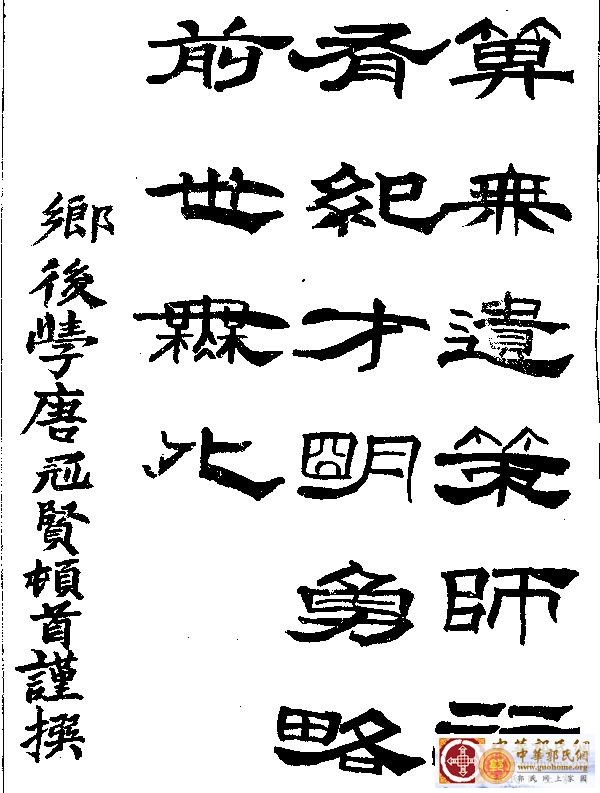 筭無遺策師行
有紀才明勇略
前世無比
鄉後學唐冠賢頓首謹撰
中華郭氏網
www.guohome.org
郭氏网上家园